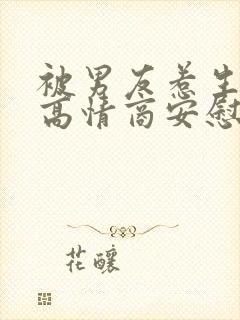 被男友惹生
高情商安慰
花釀